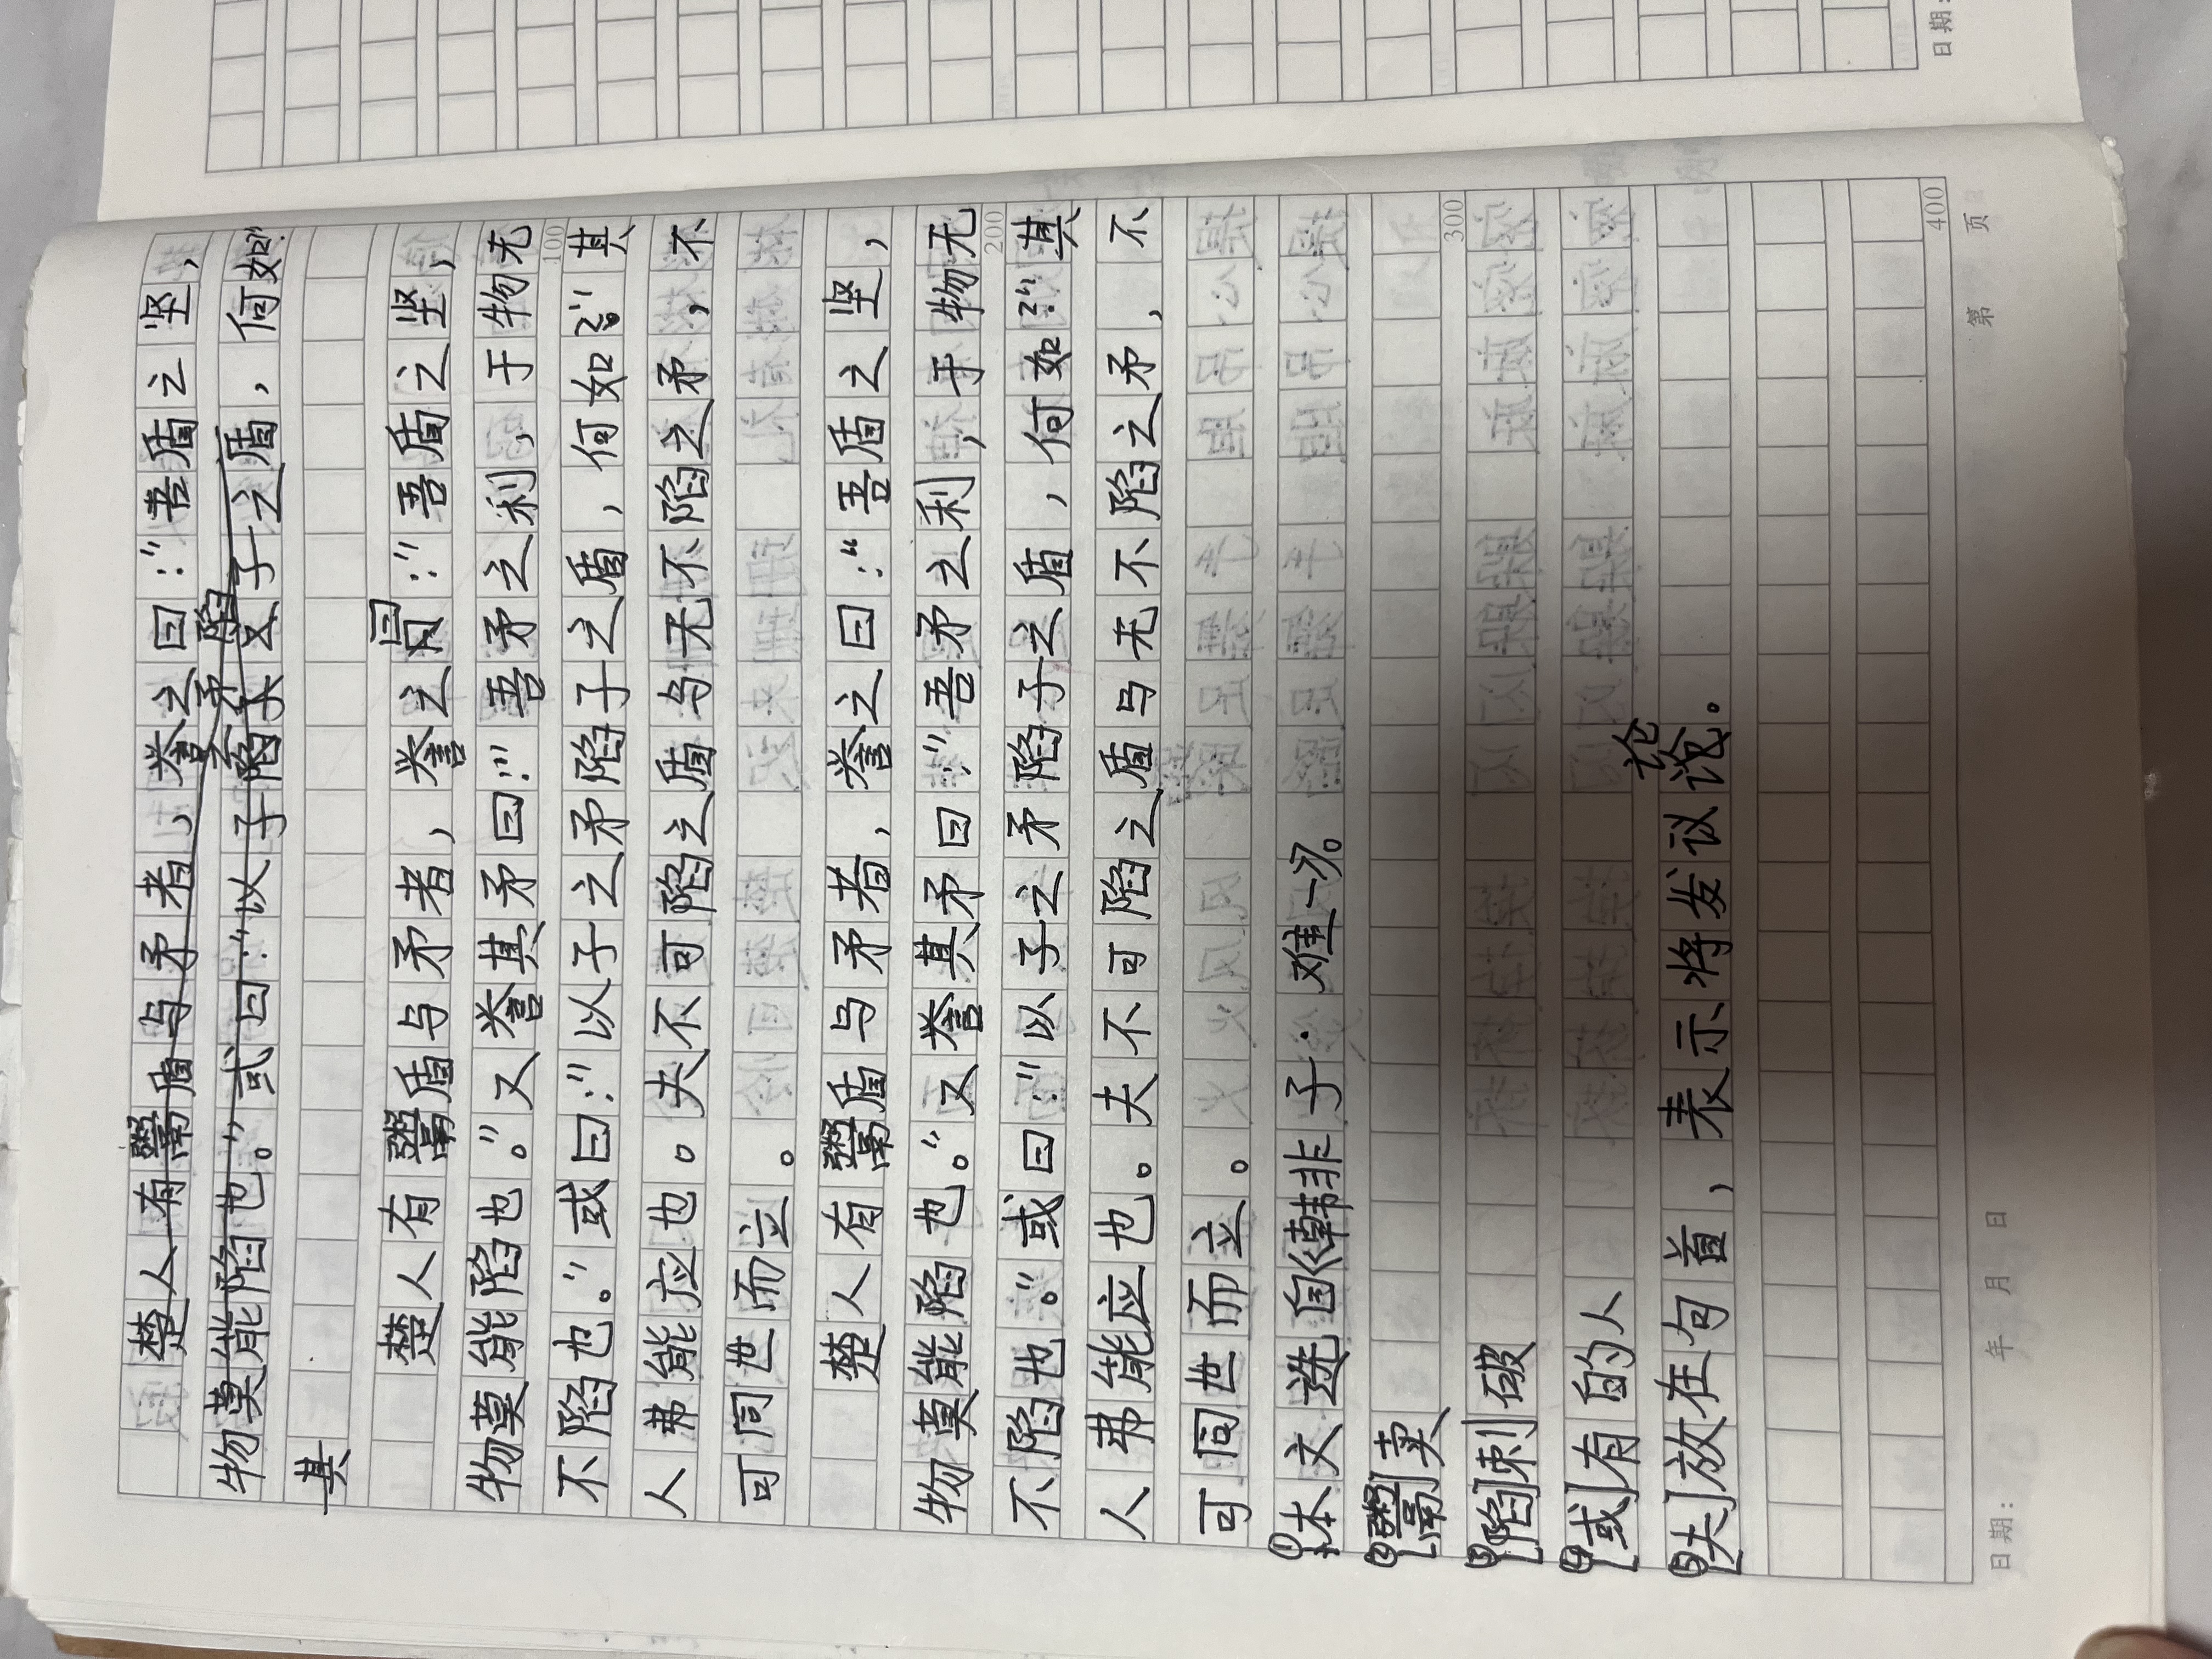 楚人有鬻盾与矛者，誉之曰：“吾盾之坚，
之矛陷
物莫能陷也。”或曰：“以子陷子之盾，何如？”
其
楚人有鬻盾与矛者，誉之曰：“吾盾之坚，
物莫能陷也。”又誉其矛曰：“吾矛之利，于物无
100
不陷也。”或曰：“以子之矛陷子之盾，何如？”其
人弗能应也。夫不可陷之盾与无不陷之矛，不
可同世而立。
楚人有鬻盾与矛者，誉之曰：“吾盾之坚，
物莫能陷也。”又誉其矛曰：“吾矛之利，于物无
200
不陷也。”或曰：“以子之矛陷子之盾，何如？”其
人弗能应也。夫不可陷之盾与无不陷之矛，不
可同世而立。
①本文选自《韩非子·难一》。
②[鬻]卖
300
③[陷]刺破
④[或]有的人
论
⑤[夫]放在句首，表示将发议论。
400
日期: 年 月 日 第 页
日期: